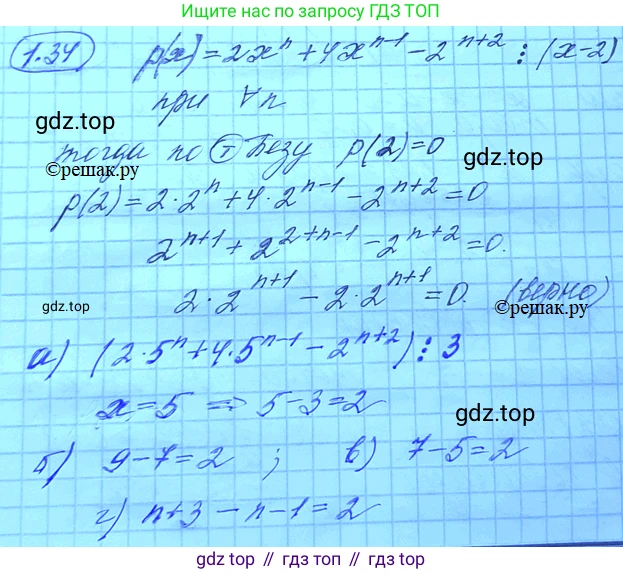 Найди больше решений на
по запросу ГДЗ ТОП
1.34 p(x) = 2x^n + 4x^{n-1} - 2^{n+2} ⋮ (x-2)
при ∀n
gdz.top
тогда по Т Безу p(2)=0
gdz.top
©решак.ру
p(2) = 2·2^n + 4·2^{n-1} - 2^{n+2} = 0
2^{n+1} + 2^{2+n-1} - 2^{n+2} = 0.
gdz.top
2·2^{n+1} - 2·2^{n+1} = 0. (верно)
©решак.ру
а) (2·5^n + 4·5^{n-1} - 2^{n+2}) ⋮ 3
x=5 ⇒ 5-3=2
gdz.top
б) 9-7=2 ; в) 7-5=2
г) n+3-n-1=2
gdz top // гдз топ // gdz.top